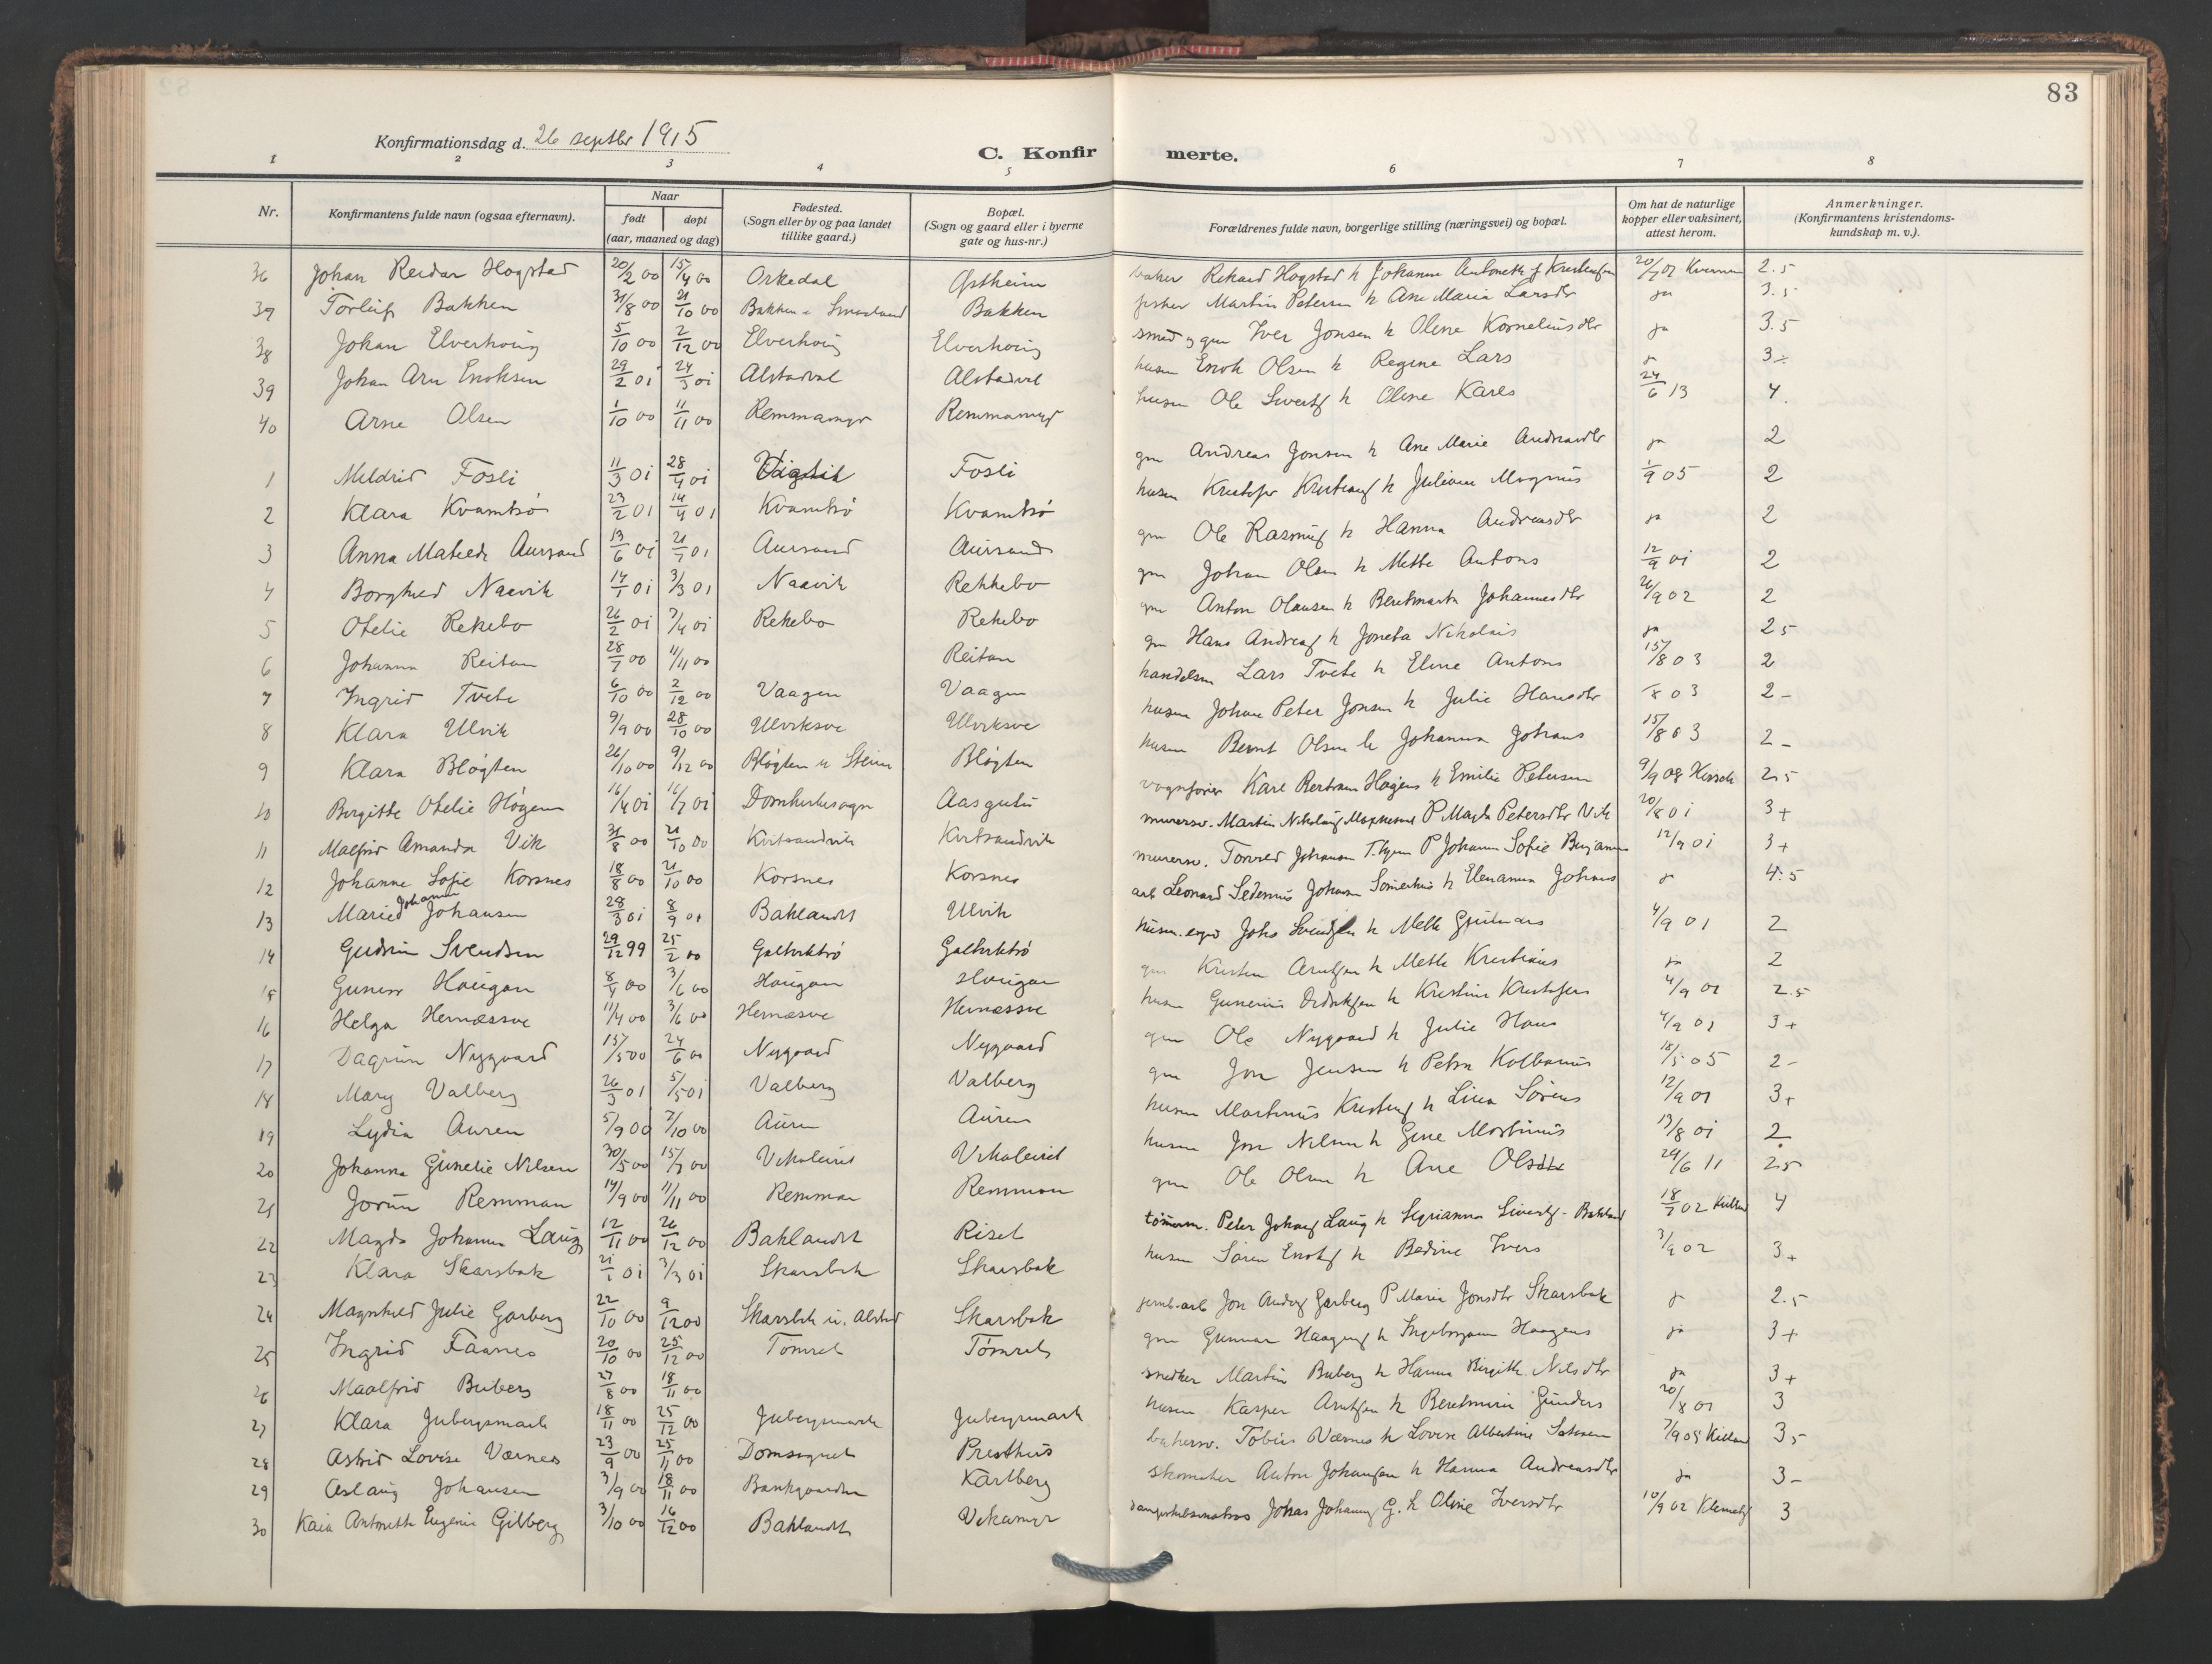 83
Konfirmationsdag d. 26 septbr 1915
C. Konfir merte.
1 2 3 4 5 6 7 8
Nr. Konfirmantens fulde navn (ogsaa efternavn). Naar født døpt (aar, maaned og dag) Fødested. (Sogn eller by og paa landet tillike gaard.) Bopæl. (Sogn og gaard eller i byerne gate og hus-nr.) Forældrenes fulde navn, borgerlige stilling (næringsvei) og bopæl. Om hat de naturlige kopper eller vaksinert, attest herom. Anmerkninger. (Konfirmantens kristendoms-kundskap m. v.).
36 Johan Reidar Hogstad 20/2 00 15/4 00 Orkedal Østheim baker Rikard Hogstad h Johanne 20/7 02 2.5
37 Torleif Bakken 31/8 00 21/10 00 Bakken Bakken fisker Martin Petersen h Ane Maria Larsdtr ja 3.5
38 Johan Elverhøug 5/10 00 2/12 00 Elverhøug Elverhøug smed og gm Iver Jonsen h Olene Korneliusdtr ja 3.5
39 Johan Arn Enoksen 29/2 01 24/5 01 Alstadval Alstadval husm Enok Olsen h Regine Lars ja 3
40 Arne Olsen 1/10 00 11/11 00 Remmamyr Remmamyr husm Ole Sivertsf h Oline Kares 24/6 13 4.
1 Meldrid Fosli 11/3 01 28/4 01 Fosli gm Andreas Jonsen h Ane Marie Andreasdtr ja 2
2 Klara Kvamtrø 23/2 01 14/4 01 Kvamtrø Kvamtrø husm Kristofer h Juliane Magnus 1/9 05 2
3 Anna Matilde Aursand 13/6 01 21/7 01 Aursand Aursand gm Ole Rasmusf h Hanna Andreasdtr ja 2
4 Borghild Naavik 14/1 01 3/3 01 Naavik Rekkebo gm Johan Olsen h Mette Antons 12/9 01 2
5 Otelie Rekebo 26/2 01 7/4 01 Rekebo Rekebo gm Anton Olausen h Beretmarta Johannesdtr 26/9 02 2
6 Johanna Reitan 28/7 00 11/11 00 Reitan gm Hans Andreasf h Joneta Nikolais ja 2.5
7 Ingrid Tvete 6/10 00 2/12 00 Vaagen Vaagen handelsm Lars Tvete h Eline Antons 15/8 03 2
8 Klara Ulvik 9/9 00 28/10 00 Ulviksve Ulviksve husm Johan Peter Jonsen h Julie Hansdtr 8 03 2-
9 Klara Bløgten 26/10 00 9/12 00 Bløgten Bløgten husm Bernt Olsen h Johanna Johans 15/8 03 2-
10 Birgitte Otelie Høgem 16/4 01 16/7 01 Domkirkesogn vognfører Karl Bertram Høgem h Emilie Petersen 9/9 08 2.5
11 Malfrid Amanda Vik 31/8 00 21/10 00 Kvitsandvik Kvitsandvik murersv. Martin Nikolai P Magda Petersdtr Vik 20/8 01 3+
12 Johanne Sofie Korsnes 18/8 00 21/10 00 Korsnes Korsnes murersv. Johansen P Johanne Sofie 12/9 01 3+
13 Marie Johanna Johansen 28/3 01 8/9 01 Baklandet Ulvik arb Leonard Johansen h Elenanna Johans ja 4.5
14 Gudrun Svendsen 29/12 99 25/2 00 Galtviktrø Galtviktrø Johs Svendsen h Mette 4/9 01 2
15 Gunvor Haugan 8/4 00 3/6 00 Haugan Haugan gm Kristen Arntsen h Mette Kristians ja 2
16 Helga Hemæssve 11/4 00 3/6 00 Hemæsve Hemæssve husm Gunerius h Kristine Kristofers 4/9 01 2.5
17 Dagrun Nygaard 15/5 00 24/6 00 Nygaard Nygaard gm Ole Nygaard h Julie Hans 4/9 01 3+
18 Mary Valberg 26/3 01 5/5 01 Valberg Valberg gm Jon Jensen h Petra Kolbanus 18/5 05 2-
19 Lydia Auren 5/9 00 7/10 00 Auren Auren husm Martinus h Lina Sørens 12/9 01 3+
20 Johanna Gunelie Nilsen 30/5 00 15/7 00 Vikaleiret Vikaleiret husm Jon Nilsen h Gine Martinus 13/8 01 2
21 Jorun Remman 14/9 00 11/11 00 Remman Remman gm Ole Olsen h Ane Olsdtr 29/6 11 2.5
22 Magda Johanna Laug 12/11 00 26/12 00 Baklandet Riset tømmerm. Peter Johansf Laug h 18/7 02 4
23 Klara Skarsbak 21/1 01 3/3 01 Skarsbak Skarsbak husm Søren Enoksf h Bedine Ivers 3/9 02 3+
24 Magnhild Julie Garberg 22/10 00 9/12 00 Skarsbak u. Alstad Skarsbak jernb.arb Jon Garberg P Maria Jonsdtr Skarsbak ja 2.5
25 Ingrid Faanes 20/10 00 25/12 00 Tømret Tømret gm Gunnar Haagensf h Haagens ja 3+
26 Maalfrid Buberg 27/8 00 18/11 00 snedker Martin Buberg h Hanna Birgitte Nilsdtr ja 3+
27 Klara Jubergsmark 18/11 00 25/12 00 Jubergsmark Jubergsmark husm Kasper Arntsen h Gunders 20/8 01 3
28 Astrid Lovise Værnes 23/9 00 25/11 00 Domsognet Presthus bakersv. Tobias Værnes h Lovise Albertine 7/9 05 3.5
29 Aslaug Johansen 3/9 00 18/11 00 Bankgaarden Karlberg skomaker Anton Johansen h Hanna Andreasdtr ja 3-
30 Kaia Antonette Eugenie Gilberg 3/10 00 16/12 00 Baklandet Vikamyr Johas Johannsf G. h Oline Iversdtr 10/9 02 3